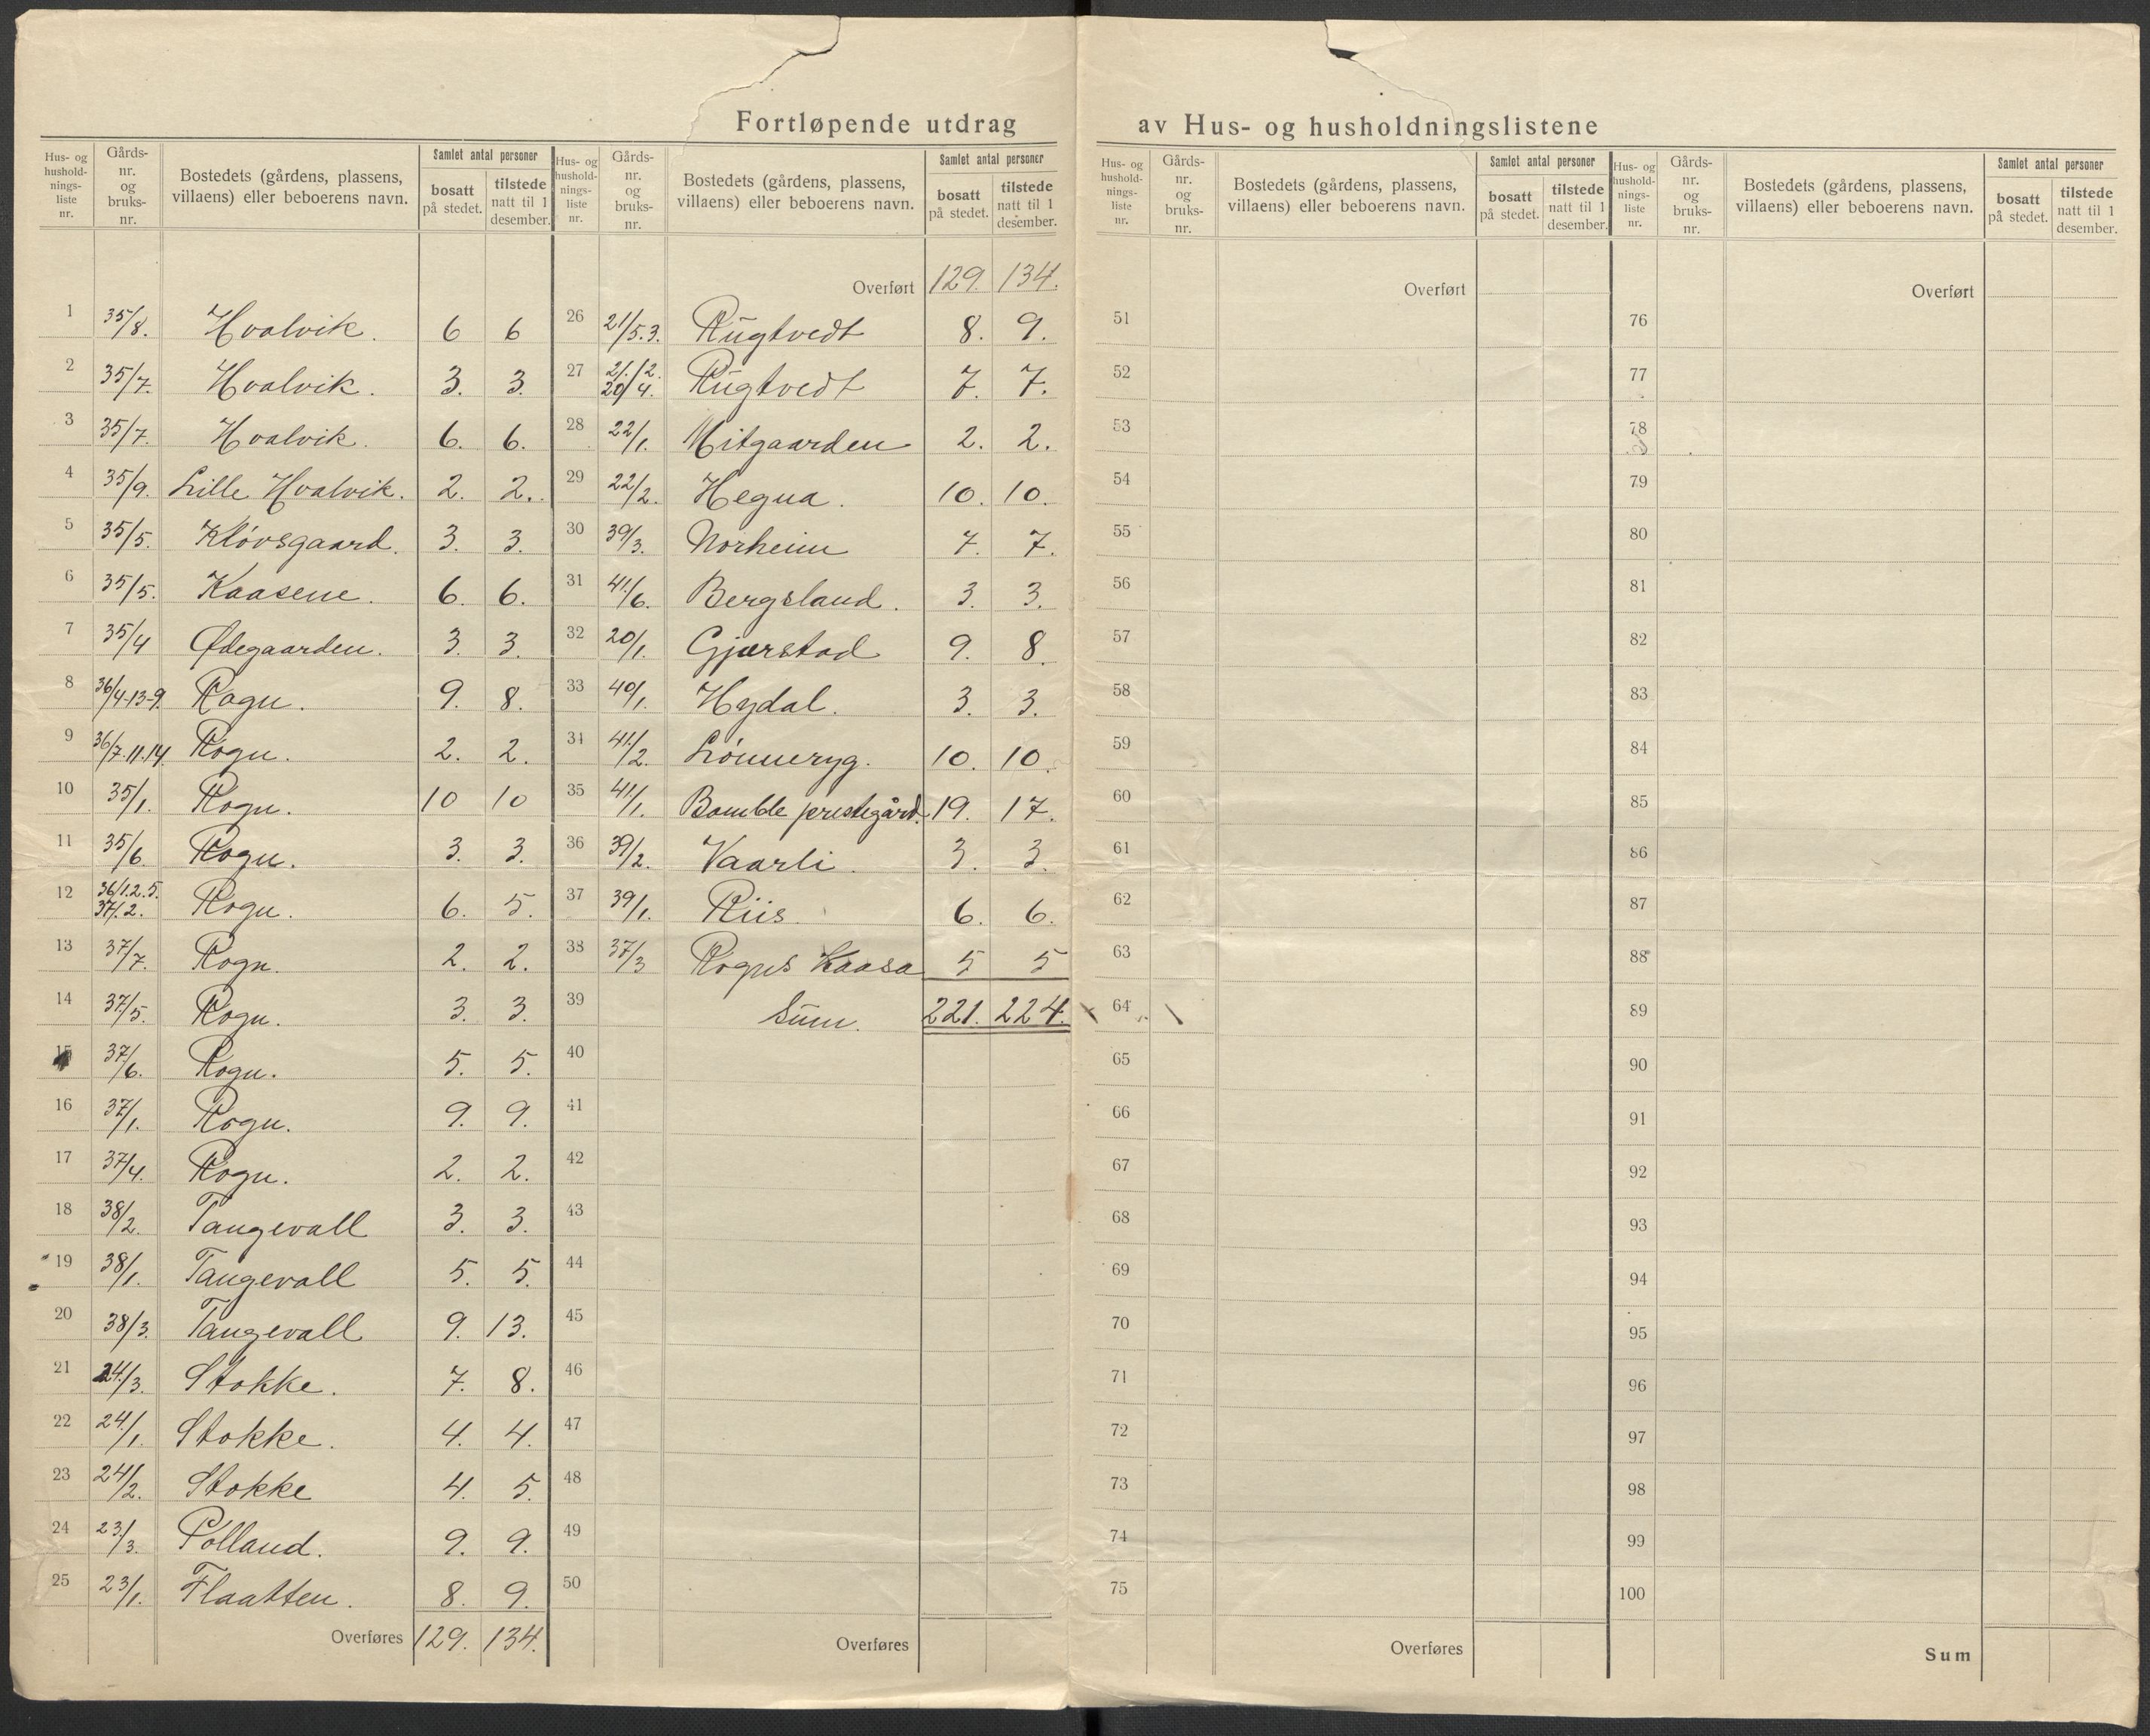 Fortløpende utdrag av Hus- og husholdningslistene
Hus- og hushold-nings-liste nr. | Gårds-nr. og bruks-nr. | Bostedets (gårdens, plassens, villaens) eller beboerens navn. | Samlet antal personer | bosatt på stedet. | tilstede natt til 1 desember.
1 35/8. Hvalvik. 6 6
2 35/7. Hvalvik. 3. 3.
3 35/7. Hvalvik. 6. 6.
4 35/9. Lille Hvalvik. 2. 2.
5 35/5. Kløvsgaard. 3. 3.
6 35/5. Kaasene. 6. 6.
7 35/4 Ødegaarden. 3. 3.
8 36/4-13-9. Rogn. 9. 8.
9 36/7.11.14. Rogn. 2. 2.
10 35/1. Rogn. 10 10
11 35/6 Rogn. 3. 3.
12 36/1.2.5. 37/2. Rogn. 6. 5.
13 37/7. Rogn. 2. 2.
14 37/5. Rogn. 3. 3.
15 37/6. Rogn. 5. 5.
16 37/1. Rogn. 9. 9.
17 37/4. Rogn. 2. 2.
18 38/2. Tangevall 3. 3.
19 38/1. Tangevall 5. 5.
20 38/3. Tangevall 9. 13.
21 24/3. Stokke. 7. 8.
22 24/1. Stokke. 4. 4.
23 24/2. Stokke 4. 5.
24 23/3. Polland. 9. 9.
25 23/1. Flaatten. 8. 9.
Overføres 129. 134.
Hus- og hushold-nings-liste nr. | Gårds-nr. og bruks-nr. | Bostedets (gårdens, plassens, villaens) eller beboerens navn. | Samlet antal personer | bosatt på stedet. | tilstede natt til 1 desember.
Overført 129. 134.
26 21/5.3. Rugtvedt 8. 9.
27 21/2. 20/4. Rugtvedt 7. 7.
28 22/1. Mitgaarden 2. 2.
29 22/2. Hegna. 10. 10.
30 39/3. Norheim 7. 7.
31 41/6. Bergsland. 3. 3.
32 20/1. Gjerstad 9. 8.
33 40/1. Hydal. 3. 3.
34 41/2. Lønneryg. 10. 10.
35 41/1. Bamble prestegård. 19. 17.
36 39/2. Vaarli. 3. 3.
37 39/1. Riis. 6. 6.
38 37/3 Rogns Kaasa 5 5
39 Sum. 221. 224.
40
41
42
43
44
45
46
47
48
49
50
Overføres
Hus- og hushold-nings-liste nr. | Gårds-nr. og bruks-nr. | Bostedets (gårdens, plassens, villaens) eller beboerens navn. | Samlet antal personer | bosatt på stedet. | tilstede natt til 1 desember.
Overført
51
52
53
54
55
56
57
58
59
60
61
62
63
64
65
66
67
68
69
70
71
72
73
74
75
Overføres
Hus- og hushold-nings-liste nr. | Gårds-nr. og bruks-nr. | Bostedets (gårdens, plassens, villaens) eller beboerens navn. | Samlet antal personer | bosatt på stedet. | tilstede natt til 1 desember.
Overført
76
77
78
79
80
81
82
83
84
85
86
87
88
89
90
91
92
93
94
95
96
97
98
99
100
Sum